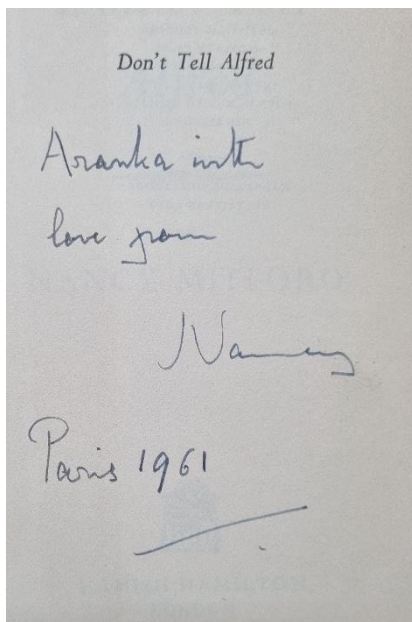 Don't Tell Alfred
Aranka with
love from
Nancy
Paris 1961